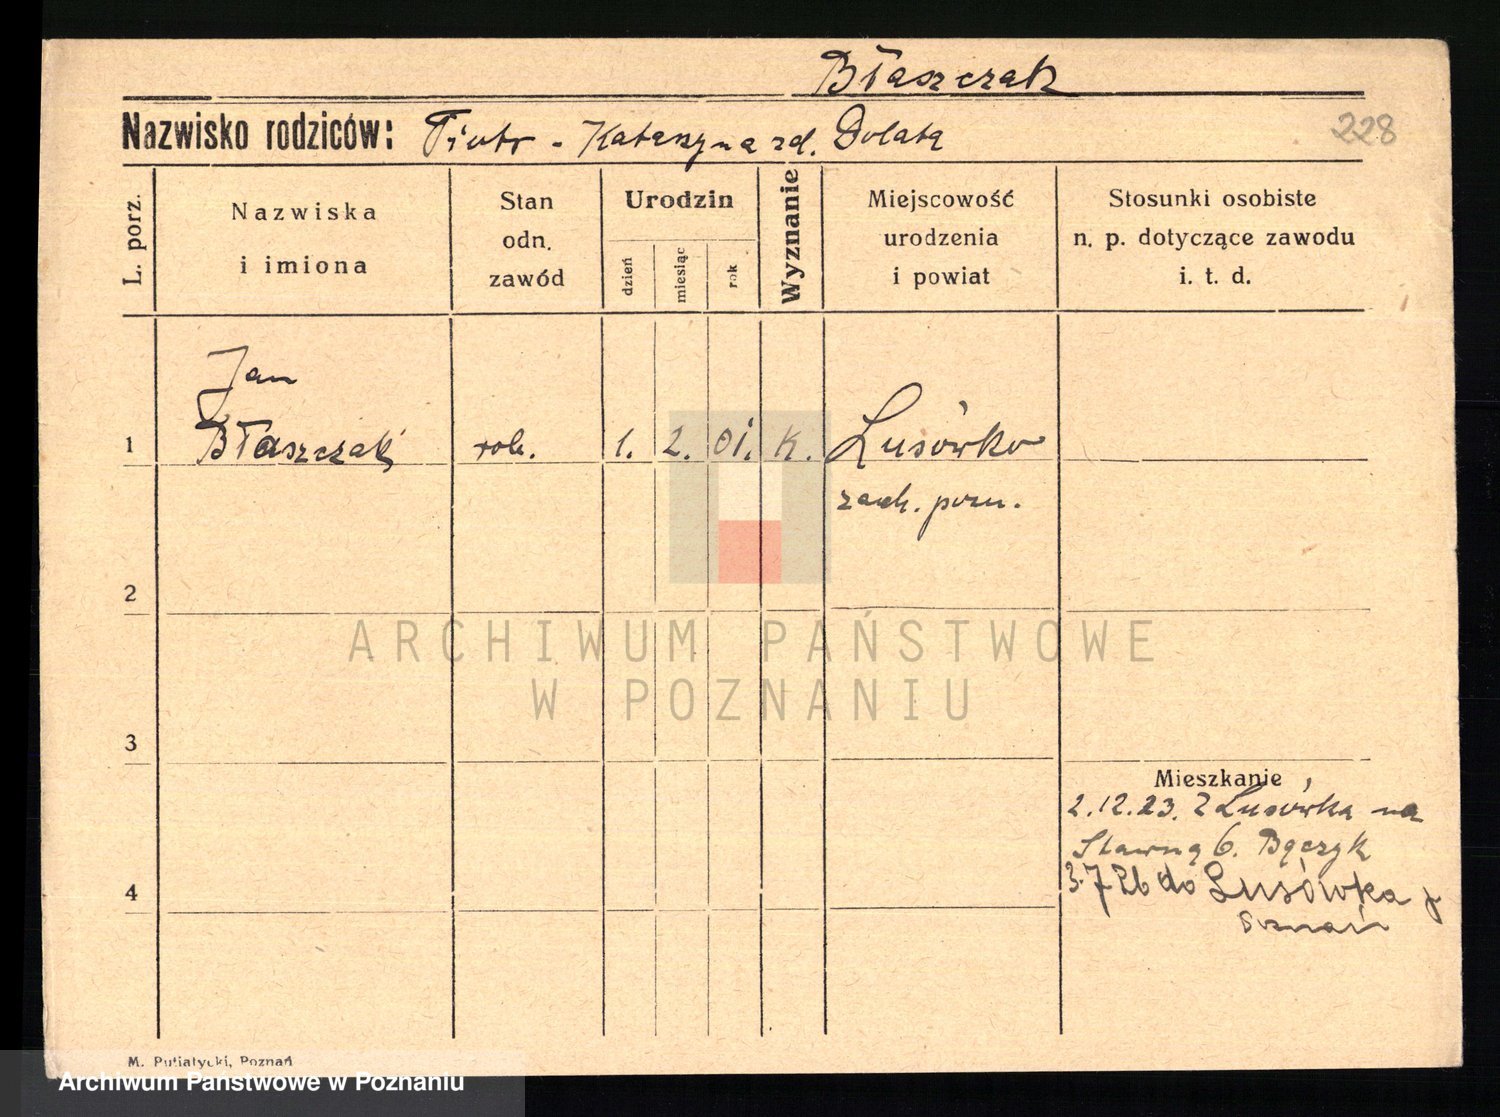 Błaszczak
Nazwisko rodziców: Piotr - Katarzyna zd. Dolata
228
L. porz.
Nazwiska
i imiona
Stan
odn.
zawód
Urodzin
dzień
miesiąc
rok
Wyznanie
Miejscowość
urodzenia
i powiat
Stosunki osobiste
n. p. dotyczące zawodu
i. t. d.
Jan
1 Błaszczak rob. 1. 2. 01. K. Lusówko
zach. pozn.
2
ARCHIWUM PAŃSTWOWE
W POZNANIU
3
Mieszkanie
2.12.23. Z Lusówka na
Stawną 6. Bączyk
4 3.7 26 do Lusówka p
Poznań
M. Putiatycki, Poznań
Archiwum Państwowe w Poznaniu